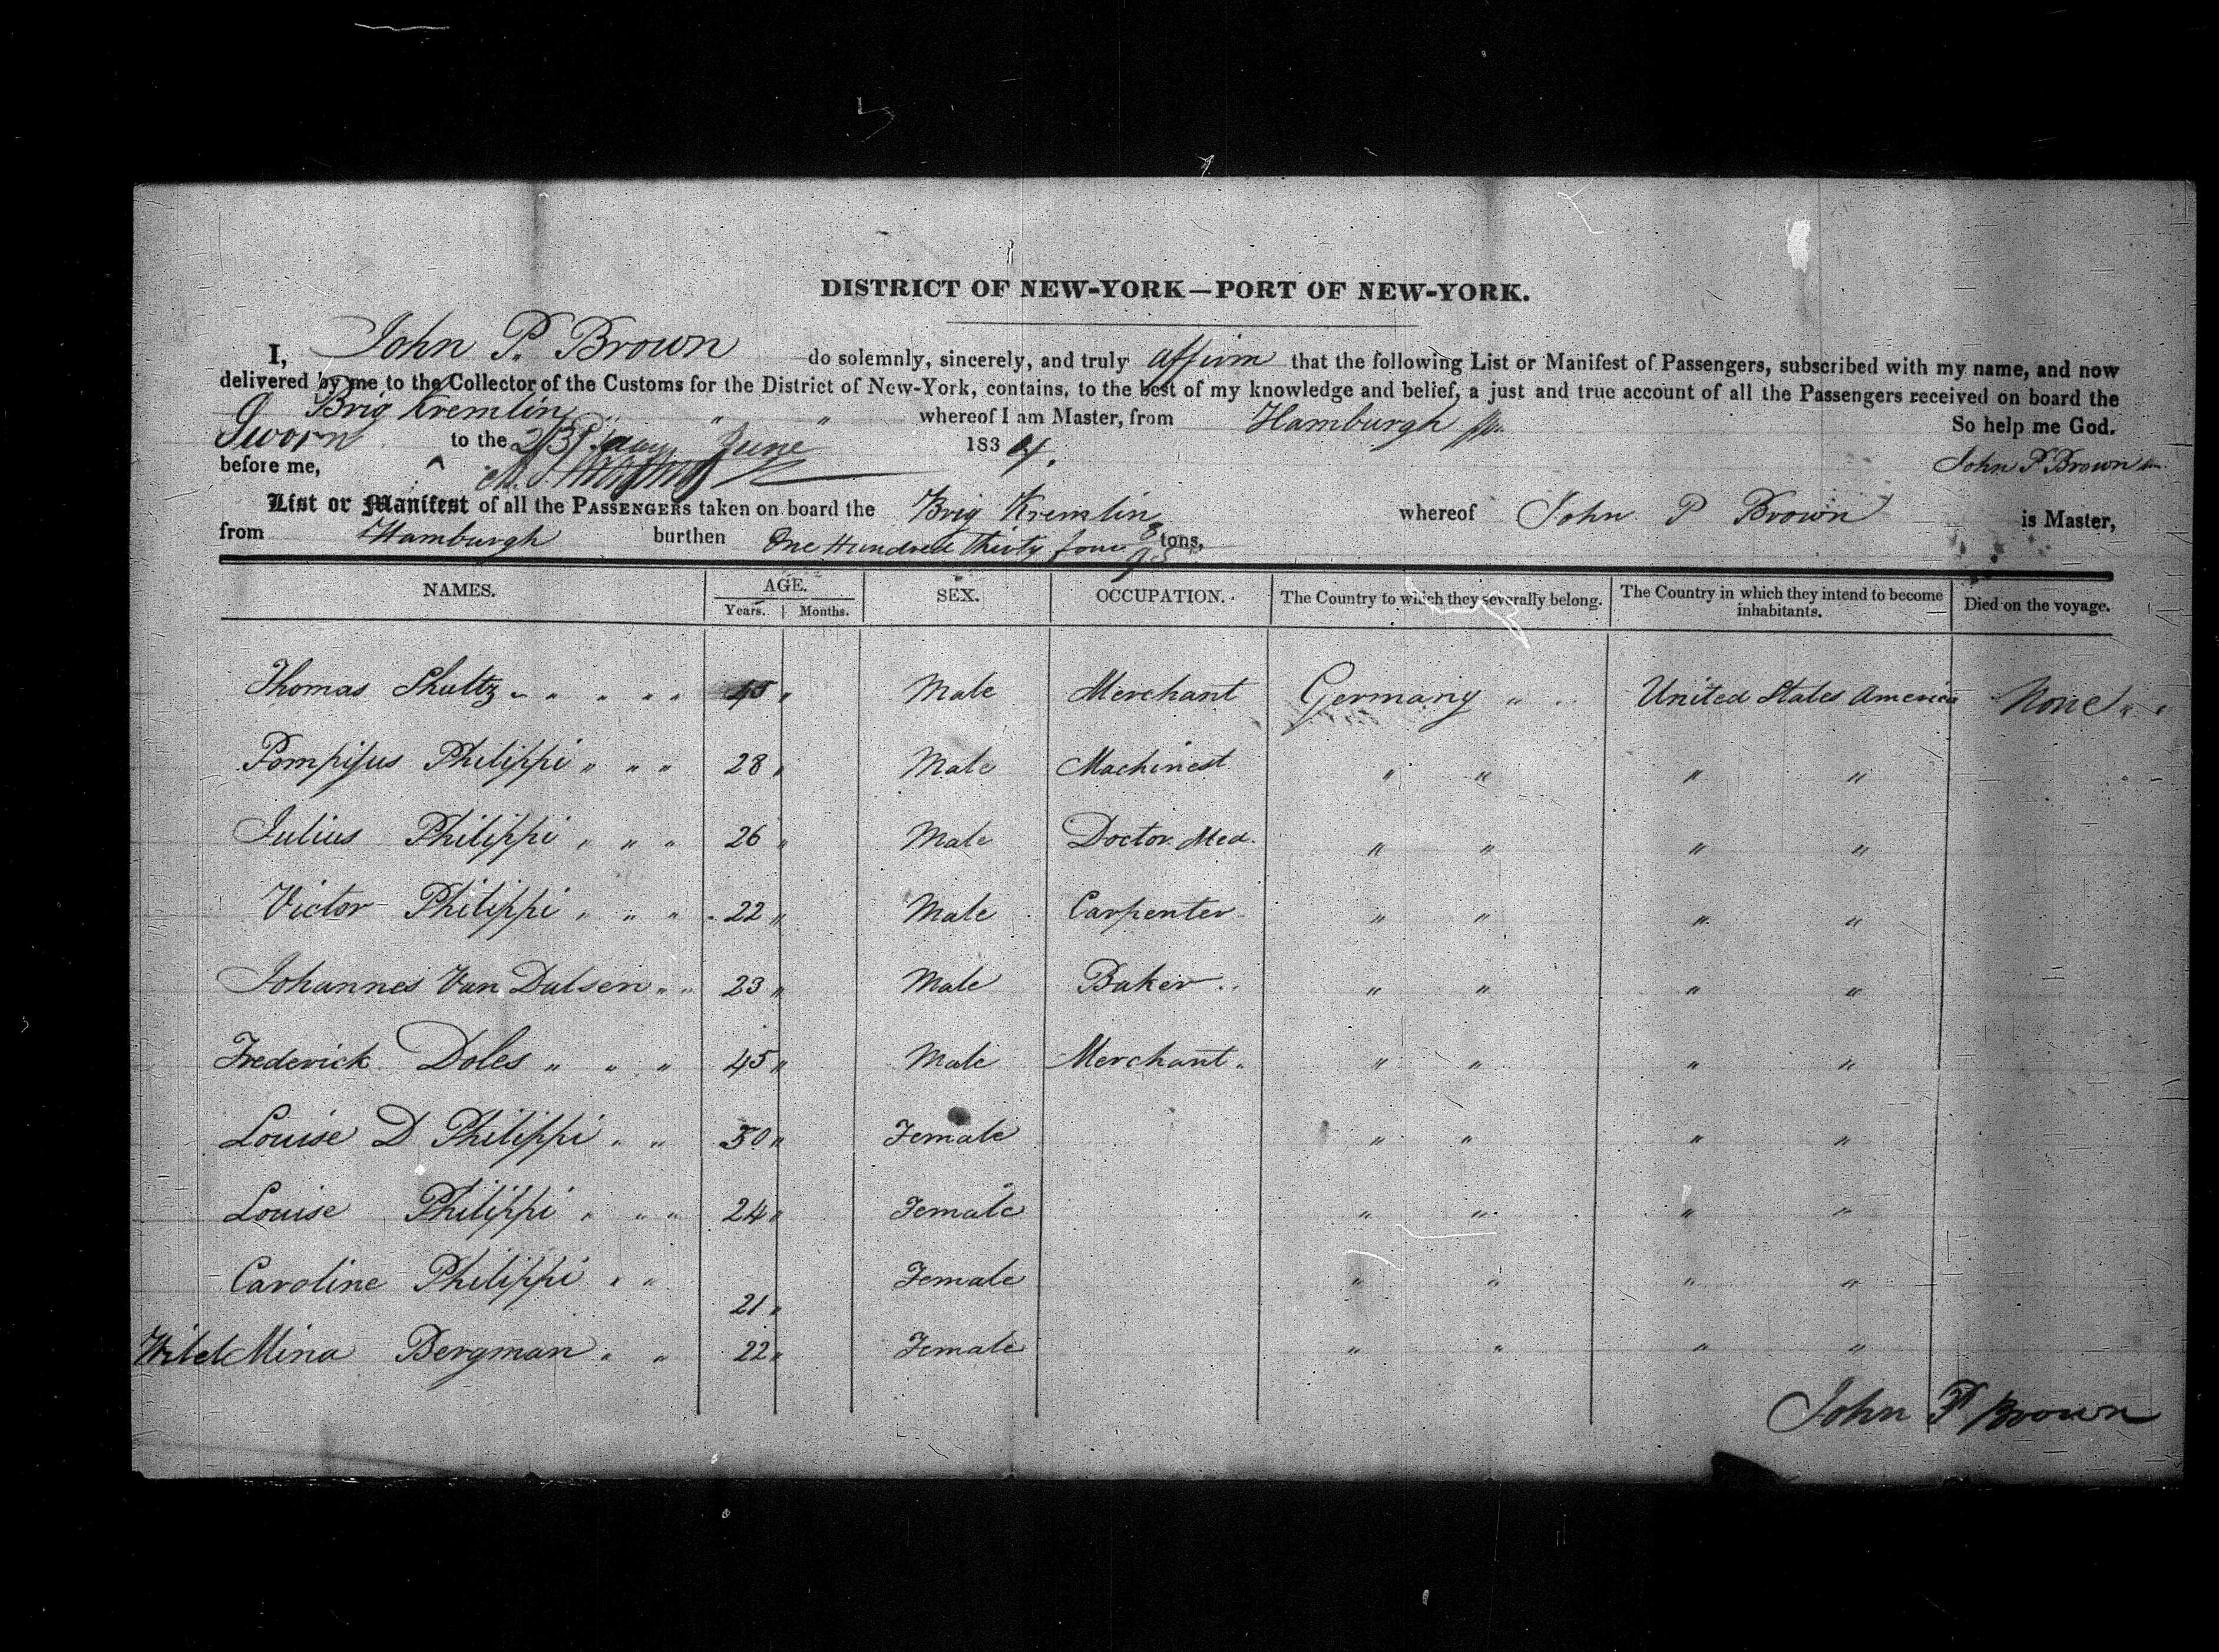 DISTRICT OF NEW-YORK—PORT OF NEW-YORK.
I, John P. Brown do solemnly, sincerely, and truly affirm that the following List or Manifest of Passengers, subscribed with my name, and now
delivered by me to the Collector of the Customs for the District of New-York, contains, to the best of my knowledge and belief, a just and true account of all the Passengers received on board the
Brig Kremlin " " " whereof I am Master, from Hamburgh So help me God.
Sworn to the 23 day June 1834.
before me, John P Brown
List or Manifest of all the PASSENGERS taken on board the Brig Kremlin whereof John P Brown is Master,
from Hamburgh burthen One Hundred thirty four 8/95 tons.
NAMES. AGE. SEX. OCCUPATION. The Country to which they severally belong. The Country in which they intend to become inhabitants. Died on the voyage.
Years. Months.
Thomas Shultz " " " " " 45 " Male Merchant Germany " " United States America None " "
Philippi " " " 28 " Male Machinest " " " "
Julius Philippi " " " 26 " Male Doctor Med. " " " "
Victor Philippi " " " 22 " Male Carpenter " " " "
Johannes Van Dulsen " " 23 " Male Baker " " " "
Frederick Doles " " " 45 " Male Merchant " " " "
Louise D Philippi " " 50 " Female " " " "
Louise Philippi " " " 24 " Female " " " "
Caroline Philippi " " 21 " Female " " " "
Mina Bergman " " 22 " Female " " " "
John P Brown